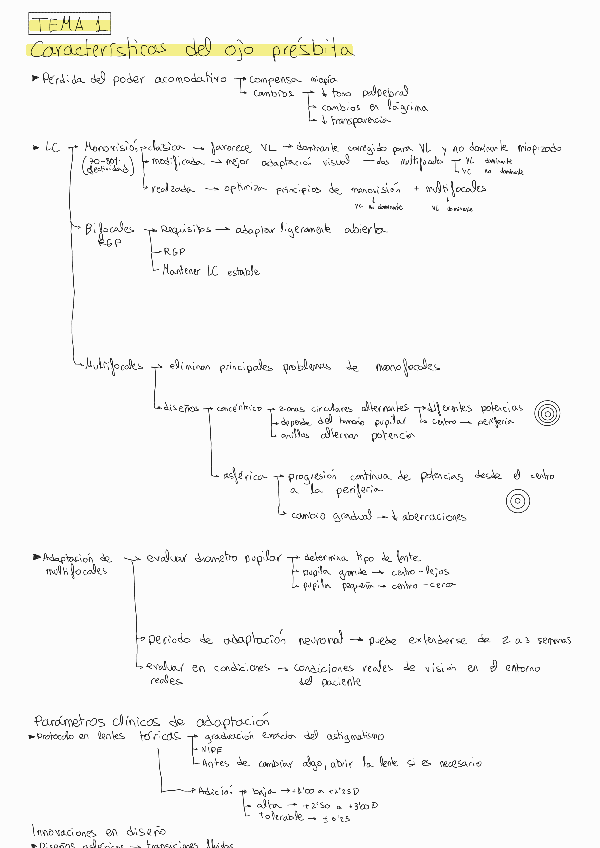 TEMA 1
Características del ojo présbita
► Pérdida del poder acomodativo → compensa miopía
→ cambios → ↓ tono palpebral
→ cambios en lágrima
→ ↓ transparencia
► LC → Monovisión → clásica → favorece VL → dominante corregido para VL y no dominante miopizado
(70-80% efectividad) → modificada → mejor adaptación visual → dos multifocales → VL dominante
→ VC no dominante
→ realzada → optimiza principios de monovisión + multifocales
VC no dominante VL dominante
→ Bifocales RGP → Requisitos → adaptar ligeramente abierta
→ RGP
→ Mantener LC estable
→ Multifocales → eliminan principales problemas de monofocales
→ diseños → concéntrico → zonas circulares alternantes → diferentes potencias
→ depende del tamaño pupilar → centro → periferia
→ anillos alternan potencia
→ asférico → progresión continua de potencias desde el centro
a la periferia
→ cambio gradual → ↓ aberraciones
► Adaptación de multifocales → evaluar diametro pupilar → determina tipo de lente
→ pupila grande → centro-lejos
→ pupila pequeña → centro-cerca
→ periodo de adaptación neuronal → puede extenderse de 2 a 3 semanas
→ evaluar en condiciones reales → condiciones reales de visión en el entorno
del paciente
Parámetros clínicos de adaptación
► Protocolo en lentes tóricas → graduación exacta del astigmatismo
→ Antes de cambiar algo, abrir la lente si es necesario
→ Adición → baja →
→ alta → +2'50 a +3'00 D
→ tolerable → ± 0'25
Innovaciones en diseño
► Diseños asféricos → transiciones fluidas